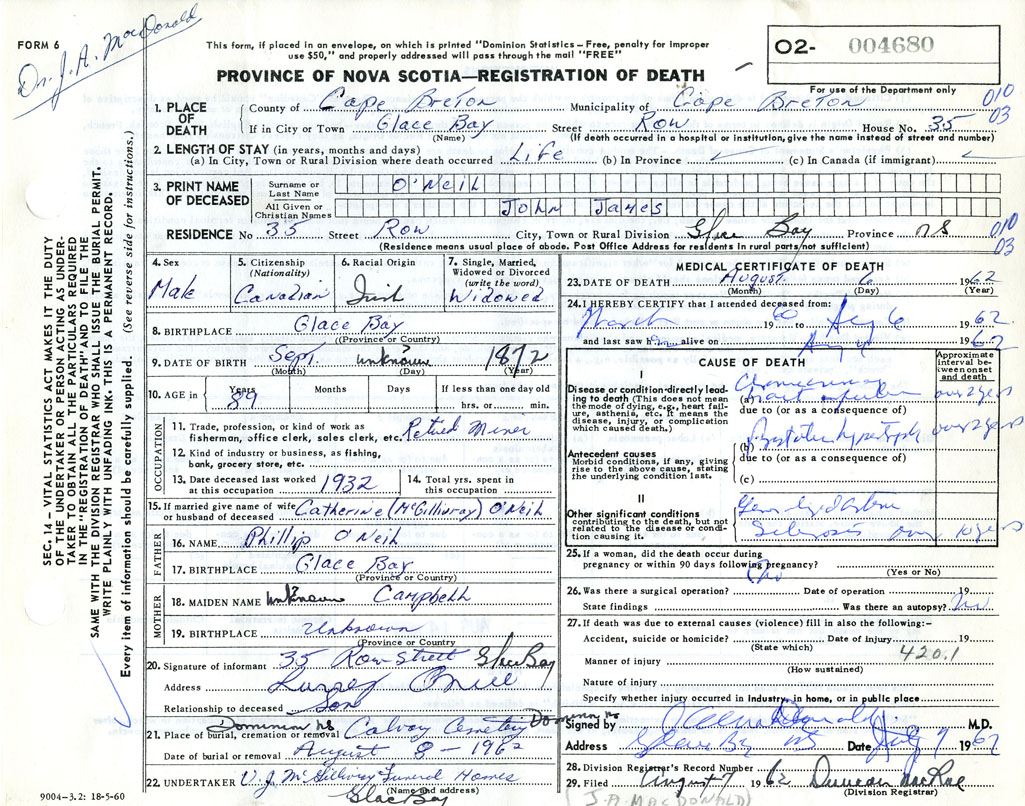 FORM 6
Dr. J. A. MacDonald
This form, if placed in an envelope, on which is printed "Dominion Statistics – Free, penalty for improper
use $50," and properly addressed will pass through the mail "FREE"
O2- 004680
PROVINCE OF NOVA SCOTIA—REGISTRATION OF DEATH
For use of the Department only
1. PLACE OF DEATH County of Cape Breton Municipality of Cape Breton 010
If in City or Town Glace Bay Street Row House No. 35 03
(Name) (If death occurred in a hospital or institution, give the name instead of street and number)
2. LENGTH OF STAY (in years, months and days)
(a) In City, Town or Rural Division where death occurred Life (b) In Province (c) In Canada (if immigrant)
3. PRINT NAME OF DECEASED
Surname or Last Name O'Neil
All Given or Christian Names John James
RESIDENCE No 35 Street Row City, Town or Rural Division Glace Bay Province NS 010
(Residence means usual place of abode. Post Office Address for residents in rural parts not sufficient) 03
SEC. 14 – VITAL STATISTICS ACT MAKES IT THE DUTY
OF THE UNDERTAKER OR PERSON ACTING AS UNDER-
TAKER TO OBTAIN ALL THE PARTICULARS REQUIRED
IN THE "REGISTRATION OF DEATH" AND TO FILE THE
SAME WITH THE DIVISION REGISTRAR WHO SHALL ISSUE THE BURIAL PERMIT.
WRITE PLAINLY WITH UNFADING INK. THIS IS A PERMANENT RECORD.
Every item of information should be carefully supplied. (See reverse side for instructions.)
4. Sex
Male
5. Citizenship
(Nationality)
Canadian
6. Racial Origin
Irish
7. Single, Married,
Widowed or Divorced
(write the word)
Widowed
8. BIRTHPLACE Glace Bay
(Province or Country)
9. DATE OF BIRTH Sept. unknown 1872
(Month) (Day) (Year)
10. AGE in Years 89 Months Days If less than one day old
hrs. or min.
OCCUPATION
11. Trade, profession, or kind of work as
fisherman, office clerk, sales clerk, etc. Retired Miner
12. Kind of industry or business, as fishing,
bank, grocery store, etc.
13. Date deceased last worked
at this occupation 1932
14. Total yrs. spent in
this occupation
15. If married give name of wife
or husband of deceased Catherine (McGillivray) O'Neil
FATHER
16. NAME Phillip O'Neil
17. BIRTHPLACE Glace Bay
(Province or Country)
MOTHER
18. MAIDEN NAME unknown Campbell
19. BIRTHPLACE Unknown
(Province or Country)
20. Signature of informant 35 Row Street Glace Bay
Address
Relationship to deceased Son
Dominion NS
21. Place of burial, cremation or removal Calvary Cemetery Dominion NS
Date of burial or removal August 8 – 1962
22. UNDERTAKER V. J. McGillivray Funeral Homes
(Name and address)
Glace Bay
9004–3.2: 18-5-60
MEDICAL CERTIFICATE OF DEATH
23. DATE OF DEATH August 6 1962
(Month) (Day) (Year)
24. I HEREBY CERTIFY that I attended deceased from:
March 19 60 to Aug 6 1962
and last saw him alive on Aug 1962
CAUSE OF DEATH
Approximate
interval be-
tween onset
and death
I
Disease or condition directly lead-
ing to death (This does not mean
the mode of dying, e.g., heart fail-
ure, asthenia, etc. It means the
disease, injury, or complication
which caused death.)
(a) over 2 years
due to (or as a consequence of)
(b) Prostatic hypertrophy over 2 years
due to (or as a consequence of)
(c)
Antecedent causes
Morbid conditions, if any, giving
rise to the above cause, stating
the underlying condition last.
II
Other significant conditions
contributing to the death, but not
related to the disease or condi-
tion causing it.
Generalized Arterio
Sclerosis over 10 years
25. If a woman, did the death occur during
pregnancy or within 90 days following pregnancy?
(Yes or No)
26. Was there a surgical operation? Date of operation 19
State findings Was there an autopsy? No
27. If death was due to external causes (violence) fill in also the following:–
Accident, suicide or homicide? Date of injury 19
(State which) 420.1
Manner of injury
(How sustained)
Nature of injury
Specify whether injury occurred in industry, in home, or in public place
Signed by M.D.
Address Glace Bay NS Date 7 1962
28. Division Registrar's Record Number
29. Filed August 7 1962 Duncan MacRae
(Division Registrar)
(J.A. MACDONALD)